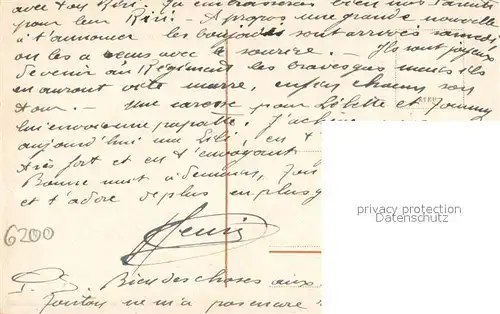 avec ton Kiri. Tu embrasseras bien nos parents
pour leur Kiri. - A propos une grande nouvelle
à t'annoncer les sont arrivés samedi
on les a reçus avec le sourire. - Ils sont joyeux
de venir au Régiment les braves gens mais ils
en auront vite marre, enfin chacun son
tour. - Une caresse pour Lisette et
lui envoie une papatte. J'achève
aujourd'hui ma Lili, en t
très fort et en t'envoyant
Bonne nuit à demain, Ton
et t'adore de plus en plus
Denis
6200
P.S. Bien des choses aux
Tonton ne m'a pas encore
privacy protection
Datenschutz